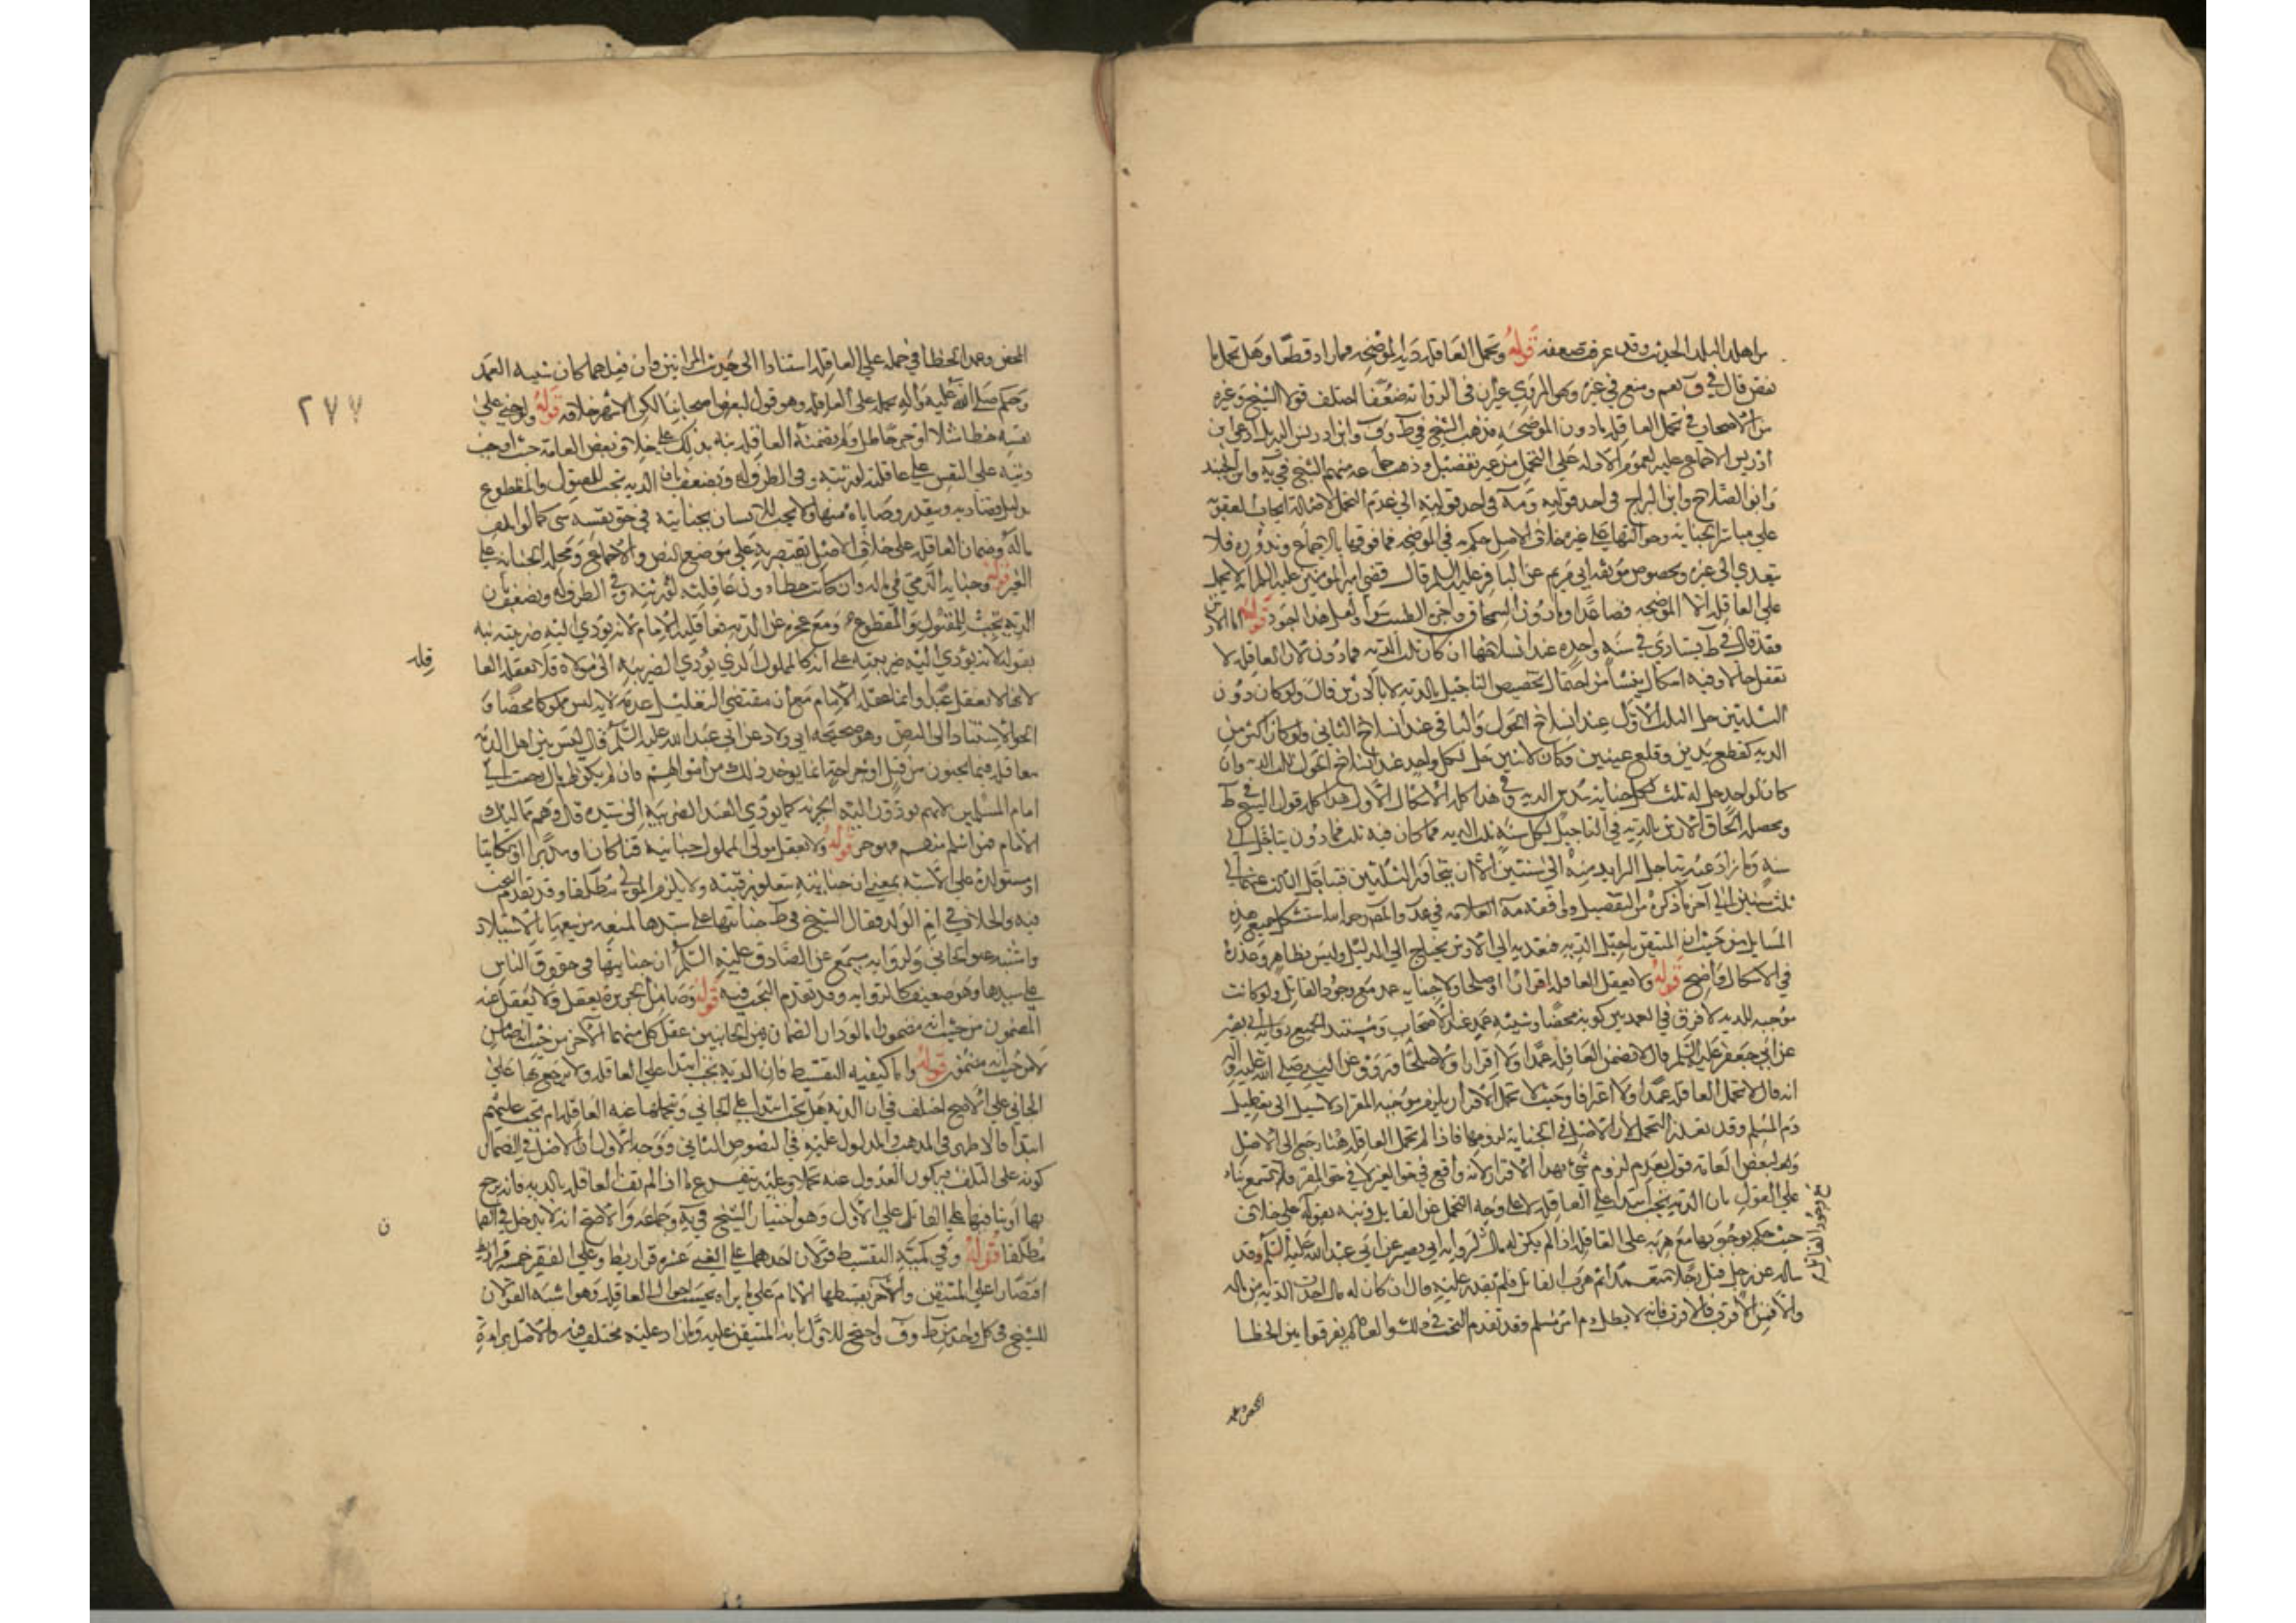 من اهل البلد الحديث وقد عرفت ضعفه قوله وتحمل العاقلة دية الموضحة فما زاد قطعا وهل تحمل ما
نقص قال في ف نعم ومنع في غيره وهو المروي غير ان في الرواية ضعفا اختلف قول الشيخ وغيره
من الاصحاب في تحمل العاقلة ما دون الموضحة فذهب الشيخ في ط وف وابن ادريس اليه بل ادعى ابن
ادريس الاجماع عليه لعموم الادلة على التحمل من غير تفصيل وذهب جماعة منهم الشيخ في ية وابن الجنيد
وابو الصلاح وابن البراج في احد قوليه ومة في احد قوليه الى عدم التحمل لاصالة ايجاب العقوبة
على مباشر الجناية وحوالتها على غيره خلاف الاصل حكم به في الموضحة فما فوقها بالاجماع وندوره فلا
يتعدى الى غيره وبخصوص موثقة ابي مريم عن الباقر عليه السلم قال قضى امير المؤمنين عليه السلم انه لا يحمل
على العاقلة الا الموضحة فصاعدا وما دون السمحاق اجر الطبيب سواء ولعل هذا اجود قوله اما الارش
فقد قال في ط يستادى في سنة واحدة عند انسلاخها ان كان ثلث الدية فما دون لان العاقلة لا
تعقل حالا وفيه اشكال ينشا من احتمال تخصيص التاجيل بالدية لا بالارش قال ولو كان دون
الثلثين حل الثلث الاول عند انسلاخ الحول والباقي عند انسلاخ الثاني ولو كان اكثر من
الدية كقطع يدين وقلع عينين وكان لاثنين حل لكل واحد عند انسلاخ الحول ثلث الدية وان
كان لواحد حل له ثلث لكل جناية سدس الدية وفي هذا كله الاشكال الاول هذا كله قول الشيخ في ط
ومحصله الحاق الارش بالدية في التاجيل لكل سنة ثلث الدية فما كان فيه ثلث فما دون يتاجل الى
سنة وما زاد عنه يتاجل الزايد منه الى سنتين الا ان يتجاوز الثلثين فيتاجل الثالث عنهما الى
ثلث سنين الى آخر ما ذكره من التفصيل ووافقه مة العلامة في عد والمصر رحمه الله استشكل جميع هذه
المسايل من حيث ان المتيقن تاجيل الدية فتعديه الى الارش يحتاج الى الدليل وليس بظاهر وعذره
في الاشكال واضح قوله ولا يعقل العاقلة اقرارا ولا صلحا ولا جناية عمد مع وجود القاتل ولو كانت
موجبة للدية لا فرق في العمد بين كونه محضا وشبيه عمد عند الاصحاب ومستند الجميع رواية ابي بصير
عن ابي جعفر عليه السلم قال لا تضمن العاقلة عمدا ولا اقرارا ولا صلحا وروي عن النبي صلى الله عليه وآله
انه قال لا تحمل العاقلة عمدا ولا اعترافا وحيث لا تحمل الاقرار يلزم موجبه المقر اذ لا سبيل الى تعطيل
دم المسلم وقد تعذر التحمل لان الاصل في الجناية لزومها فاذا لم تحمل العاقلة هنا رجع الى الاصل
ولبعض العامة قول بعدم لزوم شي بهذا الاقرار لانه واقع في حق الغير لا في حق المقر فلم يسمع بناء
على القول بان الدية تجب ابتداء على العاقلة لا على وجه التحمل عن القاتل ونبه بقوله على خلاف
مع وجود القاتل
حيث حكم بوجوبها مع هربه على العاقلة اذا لم يكن له مال لرواية ابي بصير عن ابي عبد الله عليه السلم وقد
ساله عن رجل قتل رجلا متعمدا ثم هرب القاتل فلم يقدر عليه قال ان كان له مال اخذت الدية من ماله
والا فمن الاقرب فالاقرب فانه لا يبطل دم امرئ مسلم وقد تقدم البحث في ذلك والعامة لم يفرقوا بين الخطا
المحض وعمد
المحض وعمد الخطا في حمله على العاقلة استنادا الى حديث المراتين وان فعلهما كان شبيه العمد
وحكم صلى الله عليه وآله بحمله على العاقلة وهو قول لبعض اصحابنا لكن الاشهر خلافه قوله ولو جنى على
نفسه خطا قتلا او جرحا طل ولم يضمنه العاقلة نبه بذلك على خلاف بعض العامة حيث اوجب
ديته على النفس على عاقلته لورثته وفي الطرف له ويضعف بان الدية تجب للمقتول والمقطوع
بدليل قضاء دينه وينفذ وصاياه منها ولا يجب للانسان بجنايته في حق نفسه شي كما لو اتلف
ماله وضمان العاقلة على خلاف الاصل يقتصر به على موضع النص والاجماع ومحله الجناية على
الغير قوله وجناية الذمي في ماله وان كانت خطا دون عاقلته لورثته وفي الطرف له ويضعف بان
الدية تجب للمقتول والمقطوع ومع عجزه عن الدية فعاقلته الامام لانه يؤدي اليه ضريبته نبه
بقوله لانه يؤدي اليه ضريبته على انه كالمملوك الذي يؤدي الضريبة الى مولاه فلا تعقله العا
قلة
لانها لا تعقل عبدا وانما عقله الامام مع ان مقتضى التعليل عدمه لانه ليس مملوكا محضا وا
لحق الاستناد الى النص وهو صحيحة ابي ولاد عن ابي عبد الله عليه السلم قال ليس بين اهل الذمة
معاقلة فيما يجنون من قتل او جراحة انما يوخذ ذلك من اموالهم فان لم يكن لهم مال رجعت الى
امام المسلمين لانهم يودون اليه الجزية كما يؤدي العبد الضريبة الى سيده قال وهم مماليك
الامام فمن اسلم منهم فهو حر قوله ولا يعقل مولى المملوك جنايته قنا كان او مدبرا او مكاتبا
او مستولدة على الاشبه بمعنى ان جنايته تتعلق برقبته ولا يلزم المولى مطلقا وقد تقدم البحث
فيه والخلاف في ام الولد فقال الشيخ في ط جنايتها على سيدها لمنعه من بيعها بالاستيلاد
واشبه عتق الجاني ولرواية مسمع عن الصادق عليه السلم ان جنايتها في حقوق الناس
على سيدها وهو ضعيف كالرواية وقد تقدم البحث فيه قوله وضامن الجريرة يعقل ولا يعقل عنه
المضمون من حيث انه مضمون اما لو دار الضمان بين الجانبين عقل كل منهما الآخر من حيث انه ضامن
لا من حيث انه مضمون قوله واما كيفية التقسيط فان الدية تجب ابتداء على العاقلة ولا يرجع بها على
الجاني على الاصح اختلف في ان الدية هل تجب ابتداء على الجاني وتتحملها عنه العاقلة ام تجب عليهم
ابتداء فالاظهر في المذهب والمدلول عليه في النصوص الثاني ووجه الاول ان الاصل في الضمان
كونه على المتلف فيكون العدول عنه تحملا وعليه يتفرع ما اذا لم تف العاقلة بالدية فانه يرجع
بها او بباقيها على القاتل على الاول وهو اختيار الشيخ في ية وجماعة والاصح انه لا يدخل في العا
ن
مطلقا قوله وفي كمية التقسيط قولان احدهما على الغني عشرة قراريط وعلى الفقير خمسة قراريط
اقتصارا على المتيقن والآخر يقسطها الامام على ما يراه بحسب احوال العاقلة وهو اشبه القولان
للشيخ في كل واحد من ط وف واحتج للاول بانه المتيقن عليه وما زاد عليه مختلف فيه والاصل براءة
٢٧٧